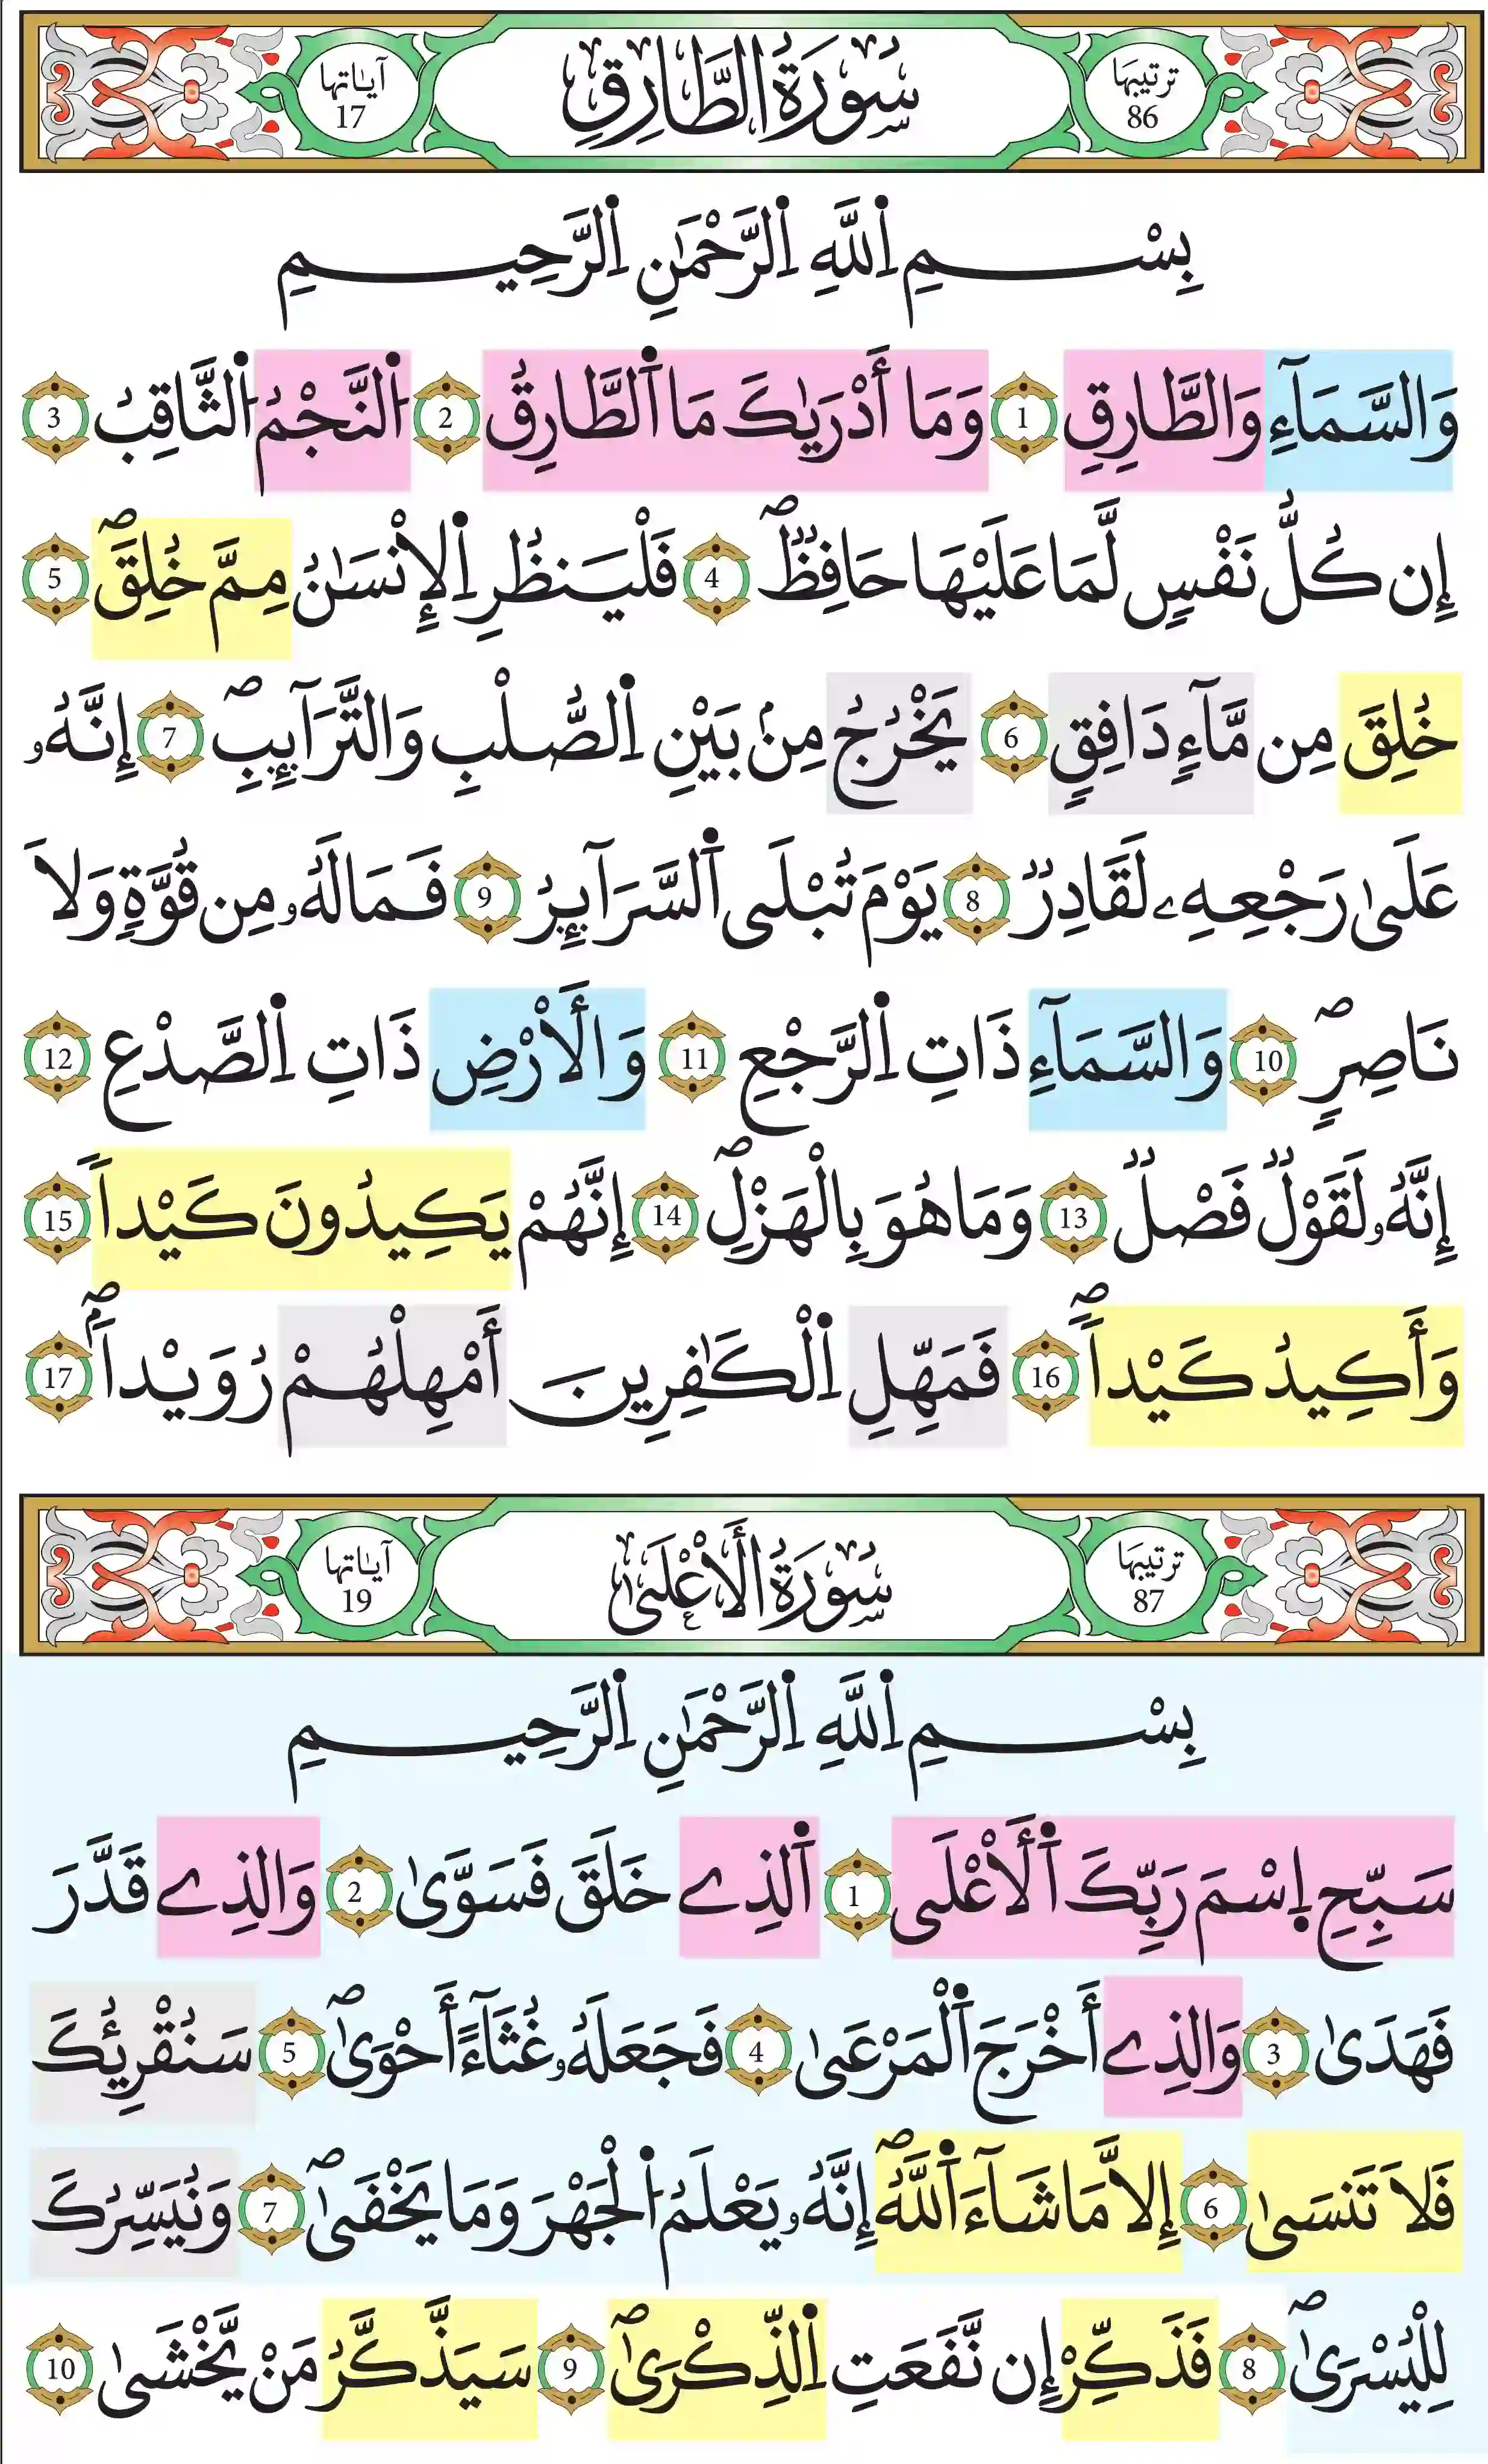 ترتيبها 86 سُورَةُ الطَّارِقِ آياتها 17
بِسْمِ اِ۬للَّهِ اِ۬لرَّحْمَٰنِ اِ۬لرَّحِيمِ
وَالسَّمَآءِ وَالطَّارِقِ 1 وَمَا أَدْر۪يٰكَ مَا اَ۬لطَّارِقُ 2 اُ۬لنَّجْمُ اُ۬لثَّاقِبُ 3
إِن كُلُّ نَفْسٍ لَّمَا عَلَيْهَا حَافِظٌۖ 4 فَلْيَنظُرِ اِ۬لْإِنْسَٰنُ مِمَّ خُلِقَۖ 5
خُلِقَ مِن مَّآءٍ دَافِقٍ 6 يَخْرُجُ مِنۢ بَيْنِ اِ۬لصُّلْبِ وَالتَّرَآئِبِۖ 7 إِنَّهُۥ
عَلَىٰ رَجْعِهِۦ لَقَادِرٌ 8 يَوْمَ تُبْلَى اَ۬لسَّرَآئِرُ 9 فَمَا لَهُۥ مِن قُوَّةٍ وَلَا
نَاصِرٍۖ 10 وَالسَّمَآءِ ذَاتِ اِ۬لرَّجْعِ 11 وَالْأَرْضِ ذَاتِ اِ۬لصَّدْعِ 12
إِنَّهُۥ لَقَوْلٌ فَصْلٌ 13 وَمَا هُوَ بِالْهَزْلِۖ 14 إِنَّهُمْ يَكِيدُونَ كَيْداً 15
وَأَكِيدُ كَيْداًۖ 16 فَمَهِّلِ اِ۬لْكَٰفِرِينَ أَمْهِلْهُمْ رُوَيْداَۢۖ 17
ترتيبها 87 سُورَةُ الْأَعْلَىٰ آياتها 19
بِسْمِ اِ۬للَّهِ اِ۬لرَّحْمَٰنِ اِ۬لرَّحِيمِ
سَبِّحِ اِ۪سْمَ رَبِّكَ اَ۬لْأَعْلَى 1 اَ۬لذِے خَلَقَ فَسَوَّىٰ 2 وَالذِے قَدَّرَ
فَهَدَىٰ 3 وَالذِے أَخْرَجَ اَ۬لْمَرْعَىٰ 4 فَجَعَلَهُۥ غُثَآءً أَحْوَىٰۖ 5 سَنُقْرِئُكَ
فَلَا تَنسَىٰ 6 إِلَّا مَا شَآءَ اَ۬للَّهُۖ إِنَّهُۥ يَعْلَمُ اُ۬لْجَهْرَ وَمَا يَخْفَىٰۖ 7 وَنُيَسِّرُكَ
لِلْيُسْرَىٰۖ 8 فَذَكِّرْ إِن نَّفَعَتِ اِ۬لذِّكْرَىٰۖ 9 سَيَذَّكَّرُ مَنْ يَّخْشَىٰ 10